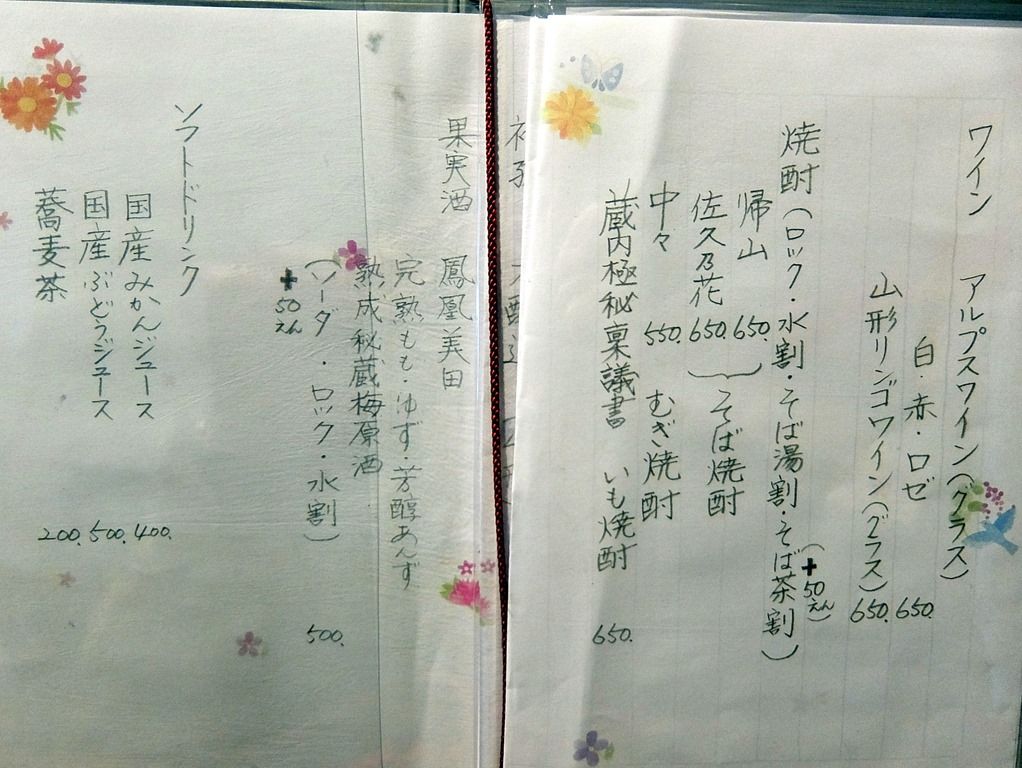 ワイン　アルプスワイン（グラス）
白・赤・ロゼ　650.
山形リンゴワイン（グラス）650.
（＋50えん）
焼酎（ロック・水割・そば湯割・そば茶割）
帰山　650.
佐久乃花　650.　そば焼酎
中々　550.　むぎ焼酎
蔵内極秘稟議書　いも焼酎　650.
果実酒　鳳凰美田
完熟もも・ゆず・芳醇あんず
熟成秘蔵梅原酒
（ソーダ・ロック・水割）　500.
＋50えん
ソフトドリンク
国産みかんジュース　400.
国産ぶどうジュース　500.
蕎麦茶　200.